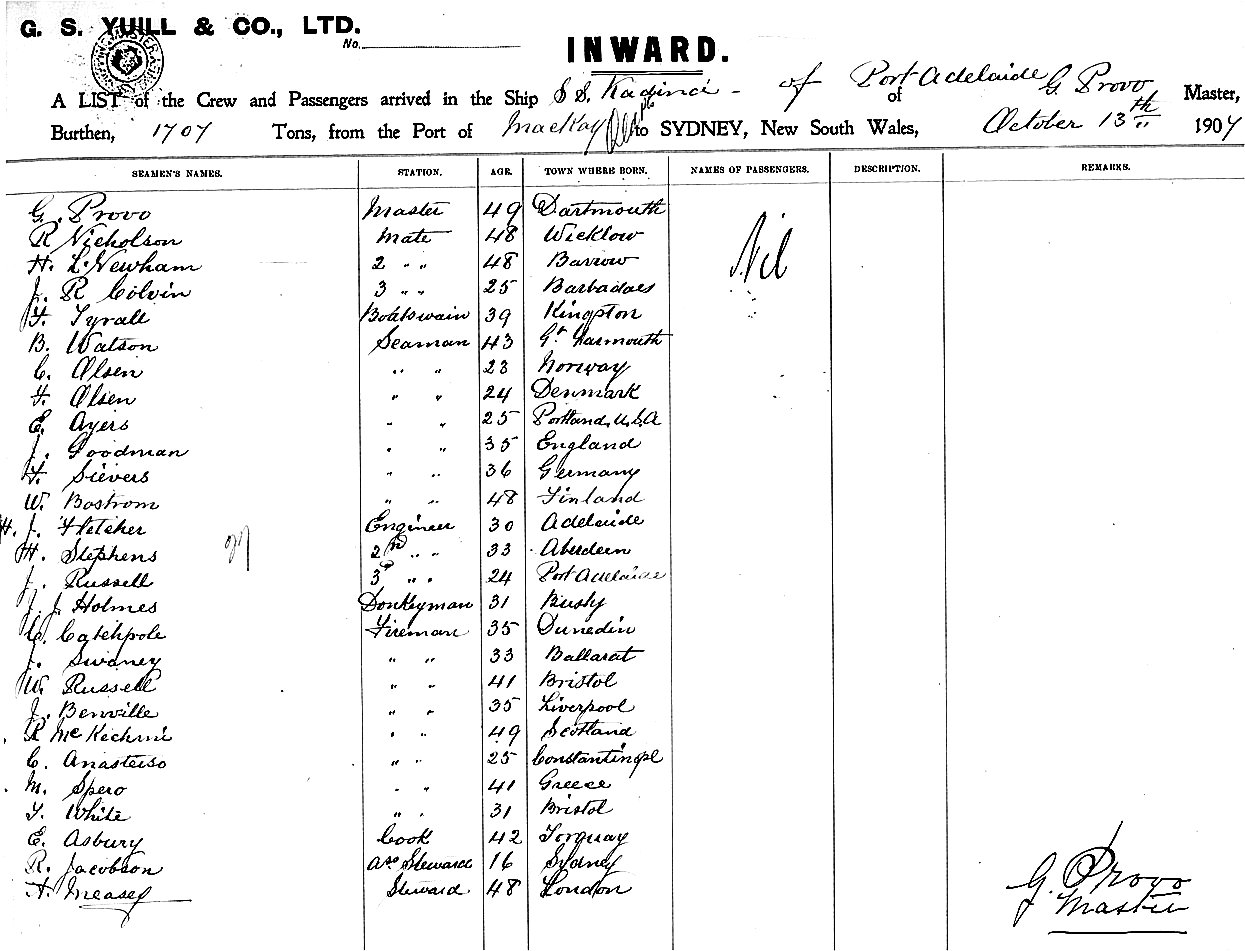 G. S. YUILL & CO., LTD.
No.
INWARD.
A LIST of the Crew and Passengers arrived in the Ship S S. Kadina of Port Adelaide of G Provo Master,
Burthen, 1707 Tons, from the Port of Mackay to SYDNEY, New South Wales, October 13th 1907
SEAMEN'S NAMES. STATION. AGE. TOWN WHERE BORN. NAMES OF PASSENGERS. DESCRIPTION. REMARKS.
G. Provo Master 49 Dartmouth Nil
R Nicholson Mate 48 Wicklow
H. L. Newham 2 " " 48 Barrow
J. R Colvin 3 " " 25 Barbadoes
F. Tyrall Boatswain 39 Kingston
B. Watson Seaman 43 Gt. Yarmouth
C. Olsen " " 23 Norway
F. Olsen " " 24 Denmark
E. Ayers " " 25 Portland, U.S.A
J. Goodman " " 35 England
H. Sievers " " 36 Germany
W. Bostrom " " 48 Finland
H. J. Fletcher Engineer 30 Adelaide
H. Stephens 2nd " " 33 Aberdeen
J. Russell 3d " " 24 Port Adelaide
J. J Holmes Donkeyman 31 Bushy
C. Catchpole Fireman 35 Dunedin
J. Swaney " " 33 Ballarat
W. Russell " " 41 Bristol
J. Benville " " 35 Liverpool
R McKechnie " " 49 Scotland
C. Anasteiso " " 25 Constantinopl
M. Spero " " 41 Greece
T. White " " 31 Bristol
E. Asbury Cook 42 Torquay
R. Jacobson Ass Steward 16 Sydney
A. Measey Steward 48 London
G. Provo
Master